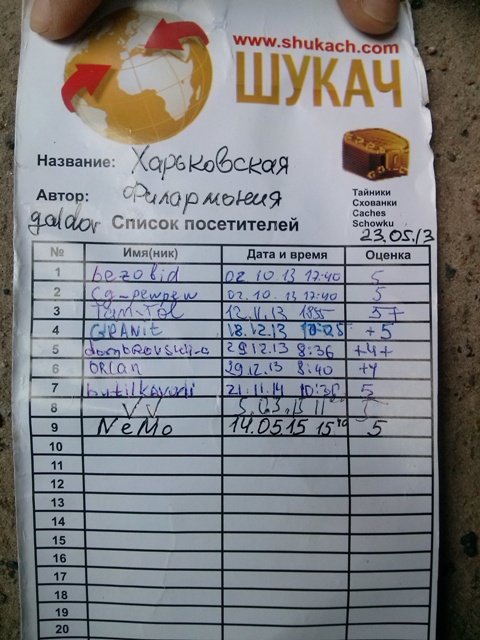 www.shukach.com
ШУКАЧ
Название: Харьковская
Автор: Филармония
Тайники
Схованки
Caches
Schowku
galdor Список посетителей 23.05.13
№ Имя(ник) Дата и время Оценка
1 bezobid 02.10.13 17:40 5
2 cg-pewpew 02.10.13 17:40 5
3 Tam-Tol 12.11.13 1855 5+
4 GRANIt 18.12.13 +5
5 29.12.13 8:36 +4+
6 ORLAN 29.12.13 8:40 +4
7 21.11.14 10:36 5
8 VV
9 NeMo 14.05.15 15 40 5
10
11
12
13
14
15
16
17
18
19
20